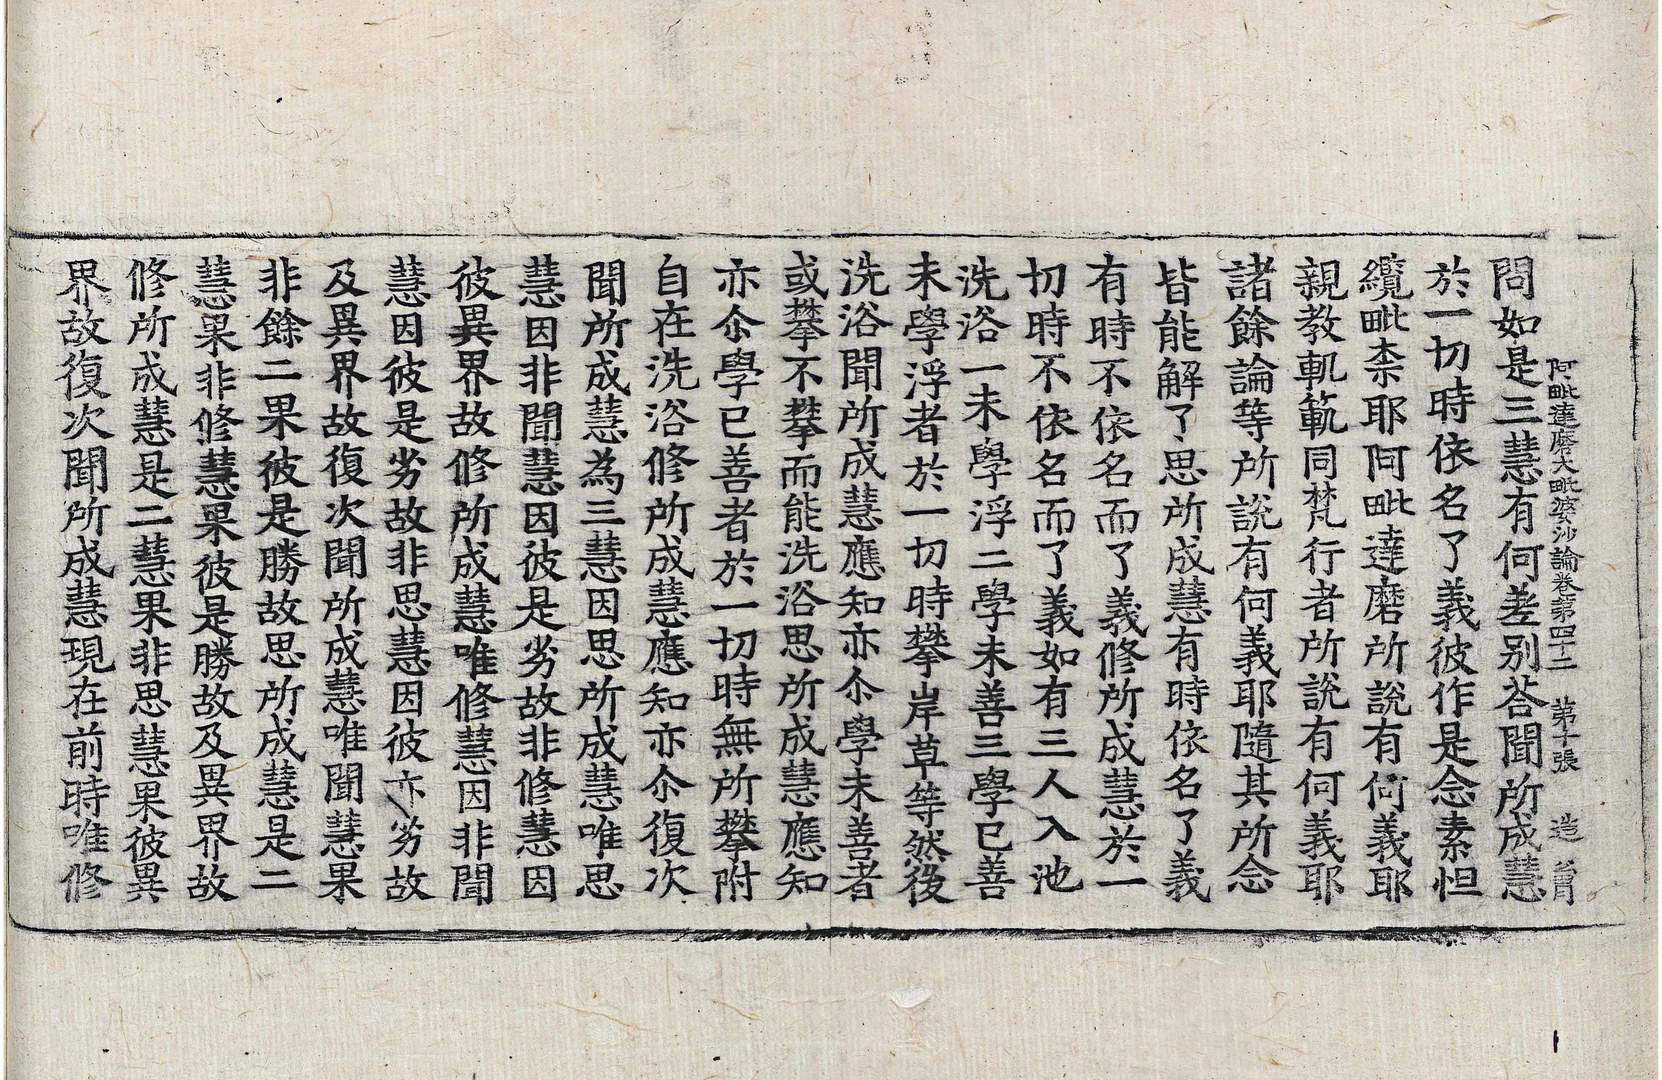 阿毗達磨大毗婆沙論卷第四十二 第十張 造
問如是三慧有何差別荅聞所成慧
於一切時依名了義彼作是念素怛
纜毗柰耶阿毗達磨所說有何義耶
親教軌範同梵行者所說有何義耶
諸餘論等所說有何義耶隨其所念
皆能解了思所成慧有時依名了義
有時不依名而了義修所成慧於一
切時不依名而了義如有三人入池
洗浴一未學浮二學未善三學已善
未學浮者於一切時攀岸草等然後
洗浴聞所成慧應知亦尒學未善者
或攀不攀而能洗浴思所成慧應知
亦尒學已善者於一切時無所攀附
自在洗浴修所成慧應知亦尒復次
聞所成慧為三慧因思所成慧唯思
慧因非聞慧因彼是劣故非修慧因
彼異界故修所成慧唯修慧因非聞
慧因彼是劣故非思慧因彼亦劣故
及異界故復次聞所成慧唯聞慧果
非餘二果彼是勝故思所成慧是二
慧果非修慧果彼是勝故及異界故
修所成慧是二慧果非思慧果彼異
界故復次聞所成慧現在前時唯修